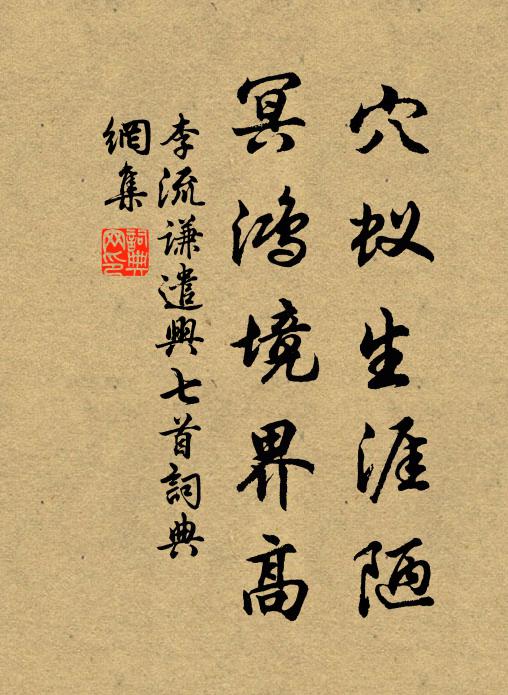 穴蚁生涯陋
冥鸿境界高
李流谦遣興七首詞典
網集
詞典
网印